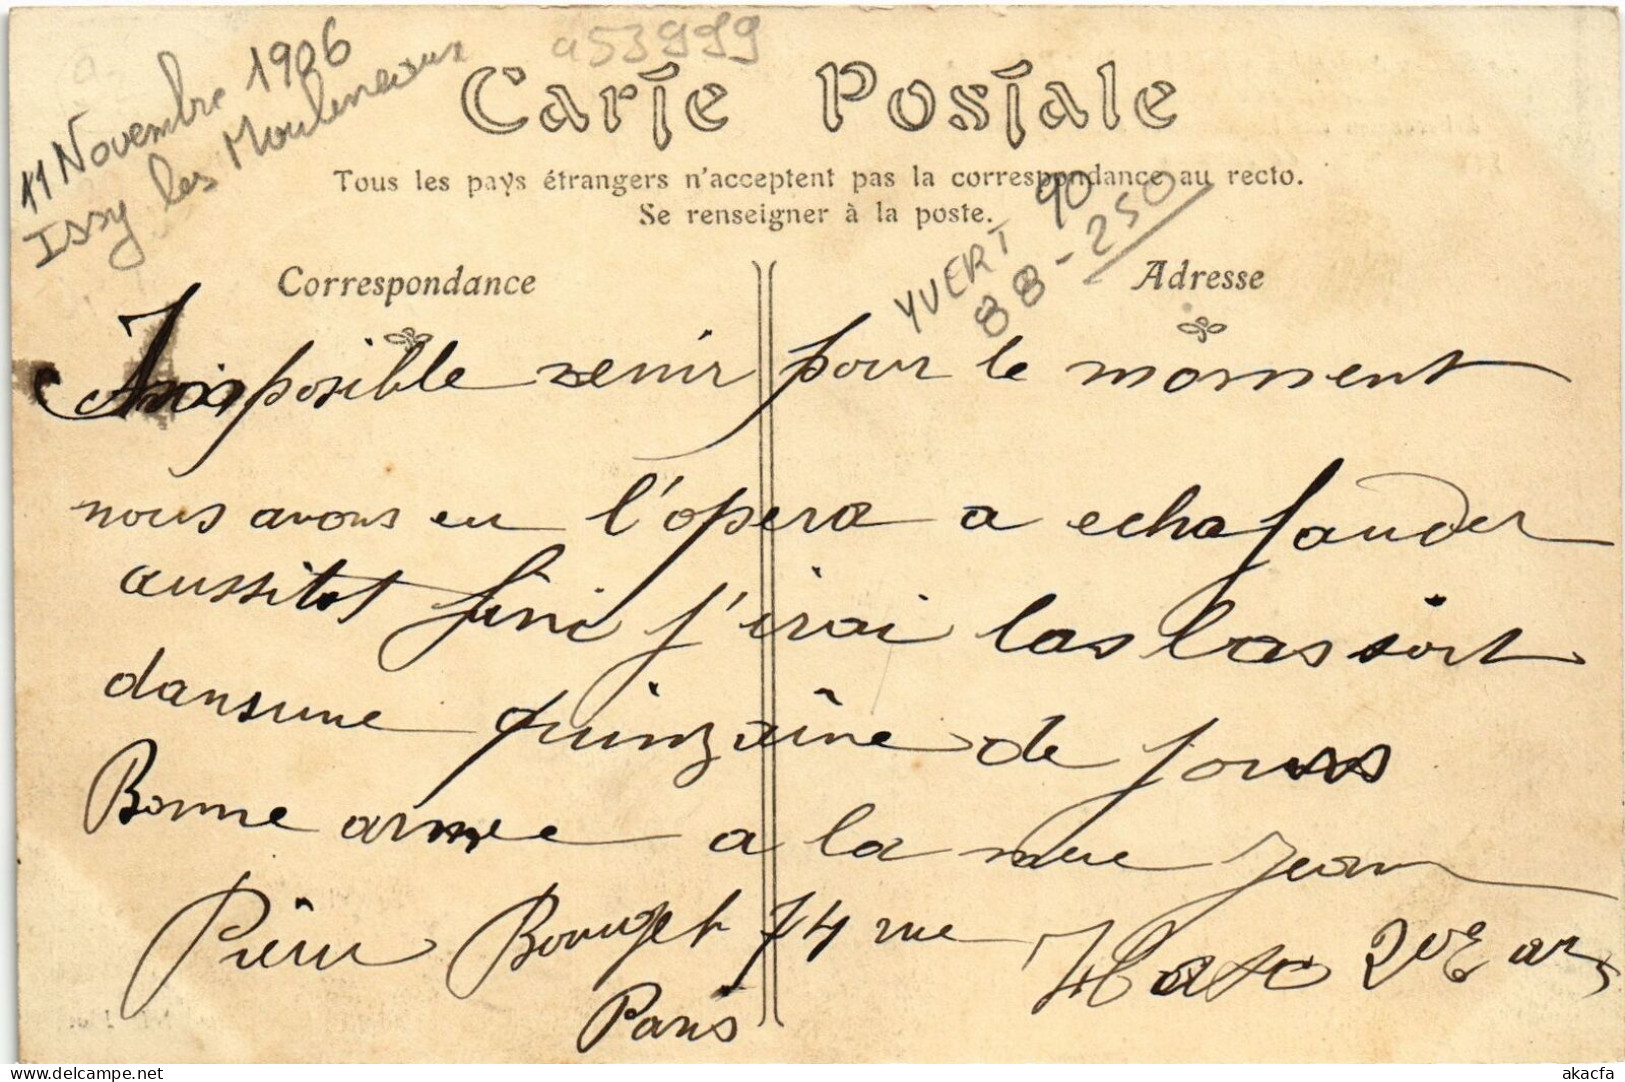 11 Novembre 1906
Issy les Moulineaux
a53999
Carte Postale
Tous les pays étrangers n'acceptent pas la correspondance au recto.
Se renseigner à la poste.
YVERT 90
88-250
Correspondance
Adresse
Imposible venir pour le moment
nous avons eu l'opera a echafauder
aussitot fini j'irai las las soit
dans une quinzaine de jours
Bonne année a la mère Jean
Pierre Bourget 74 rue Haxo 20e arr
Paris
delcampe.net
akacfa